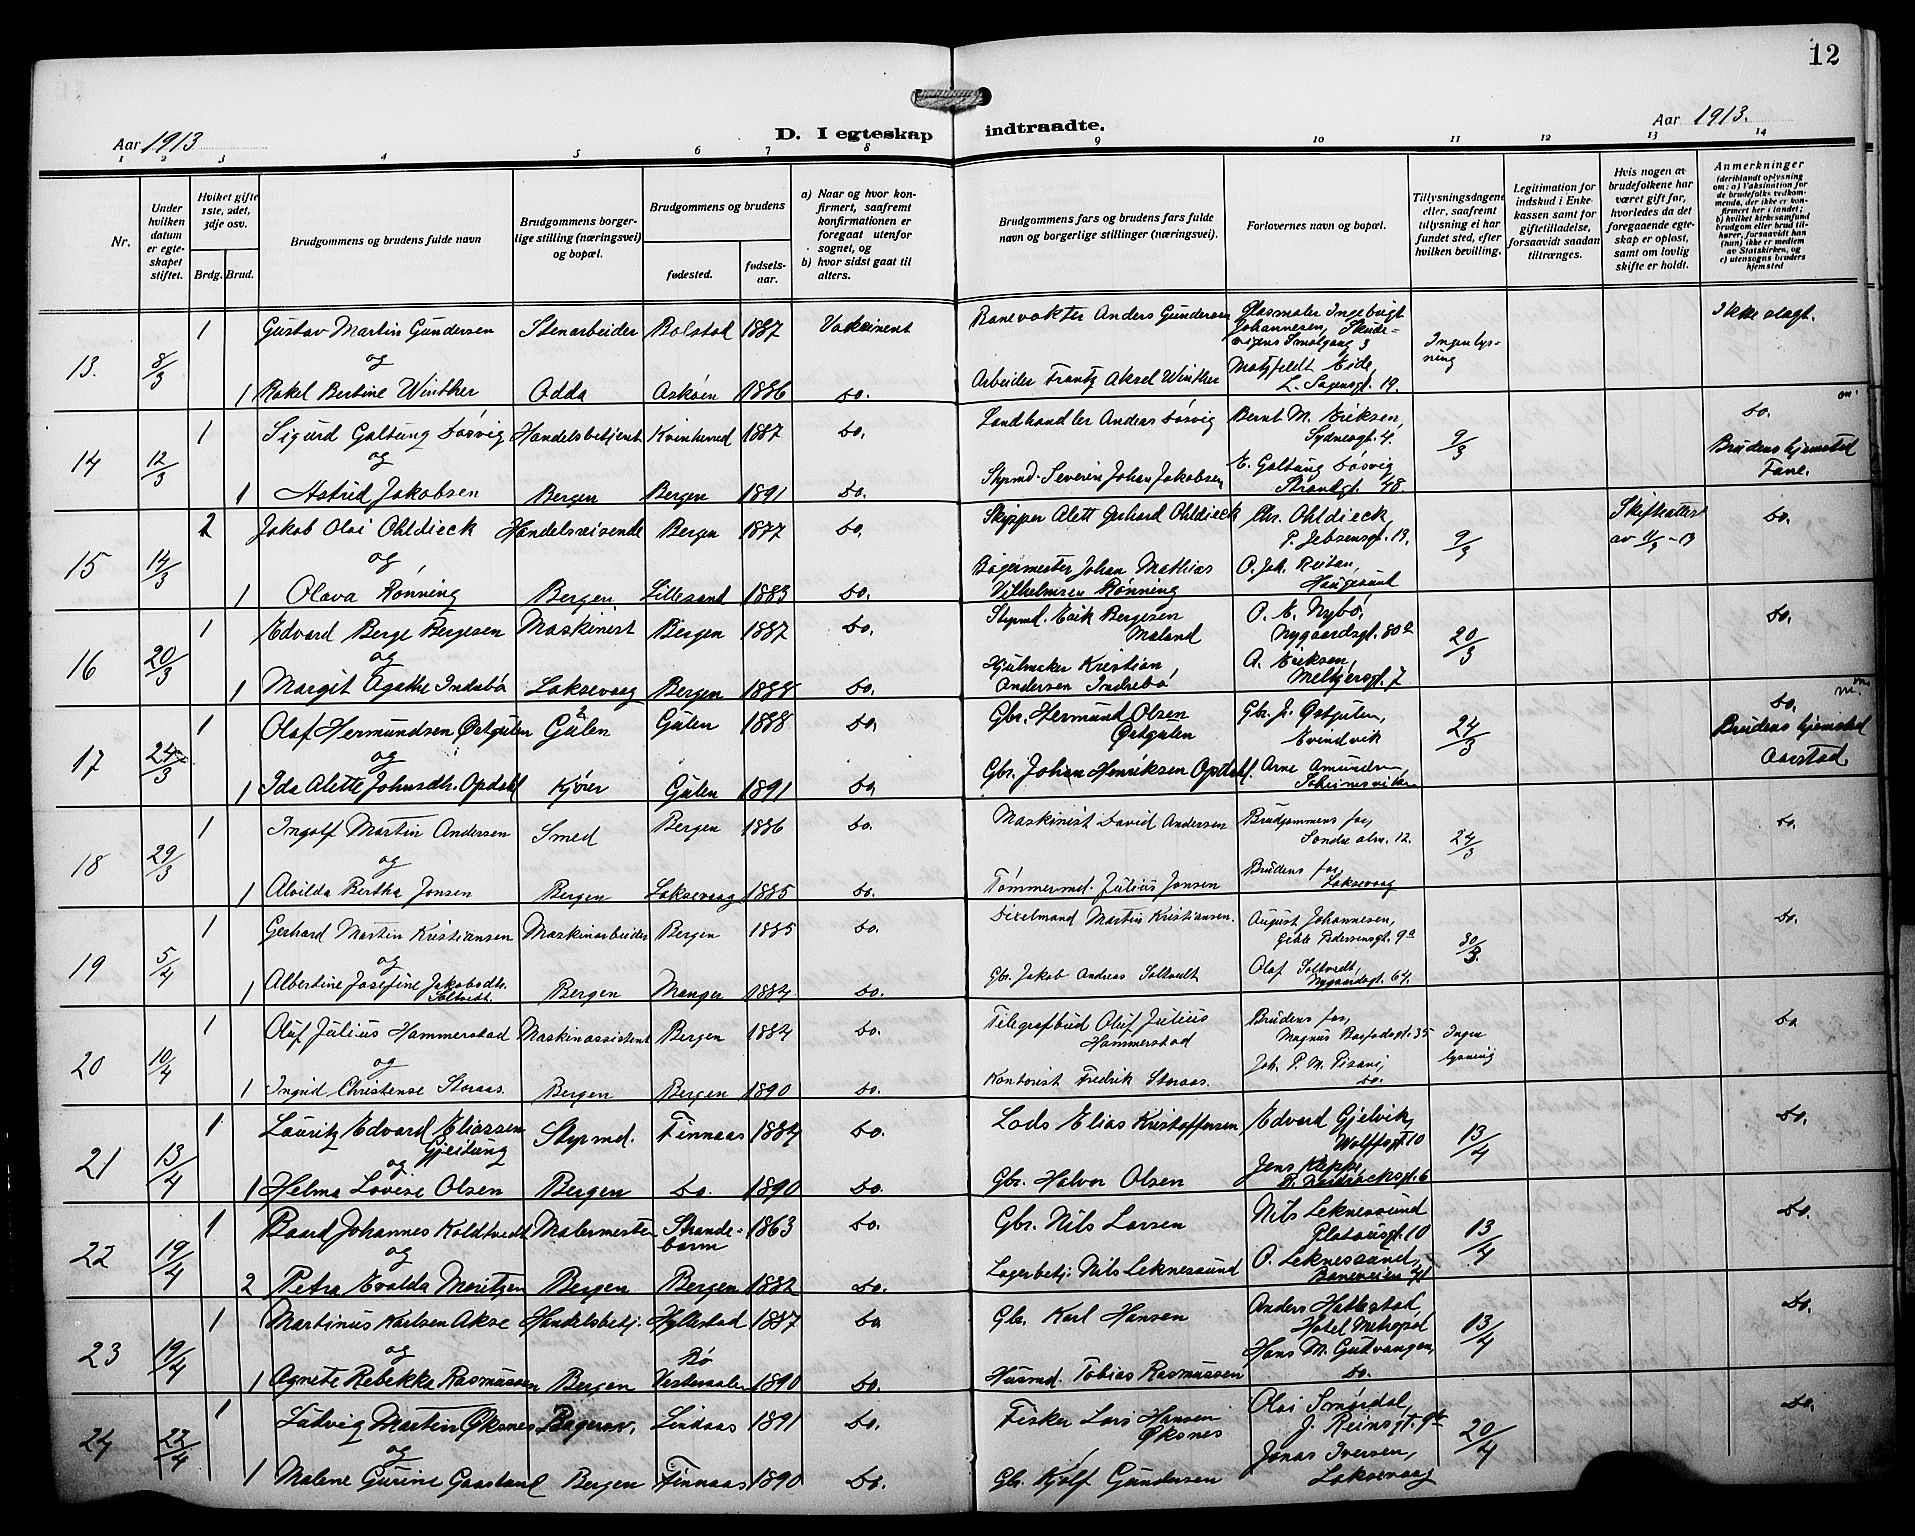 12
Aar 1913
D. I egteskap indtraadte.
Aar 1913.
1 2 3 4 5 6 7 8 9 10 11 12 13 14
Nr.
Under hvilken datum er egteskapet stiftet.
Hvilket gifte 1ste, 2det, 3dje osv.
Brdg. Brud.
Brudgommens og brudens fulde navn
Brudgommens borgerlige stilling (næringsvei) og bopæl.
Brudgommens og brudens
fødested.
fødselsaar.
a) Naar og hvor konfirmert, saafremt konfirmationen er foregaat utenfor sognet, og
b) hvor sidst gaat til alters.
Brudgommens fars og brudens fars fulde navn og borgerlige stillinger (næringsvei).
Forlovernes navn og bopæl.
Tillysningsdagene eller, saafremt tillysning ei har fundet sted, efter hvilken bevilling.
Legitimation for indskud i Enkekassen samt for giftetilladelse, forsaavidt saadan tiltrænges.
Hvis nogen av brudefolkene har været gift før, hvorledes da det foregaaende egteskap er opløst, samt om lovlig skifte er holdt.
Anmerkninger (deriblandt oplysning om: a) Vaksination for de brudefolks vedkommende, der ikke er konfirmert her i landet; b) hvilket kirkesamfund brudgom eller brud tilhører, forsaavidt han (hun) ikke er medlem av Statskirken, og c) utensogns bruders hjemsted
13. 8/3 1 Gustav Martin Gundersen Stenarbeider Bolstad 1887 Vaksinert Banevokter Anders Gundersen Glasmaler Ingebrigt Johannesen, Skudevigens Smalgang 3 Ingen lysning Ikke slagt.
og
1 Rakel Bertine Winther Odda Askøen 1886 do. Arbeider Frantz Aksel Winther Motzfeldt Eide, L. Sagensgt. 19.
14 12/3 1 Sigurd Galtung Døsvig Handelsbetjent Kvinherred 1887 do. Landhandler Andreas Døsvig Bernt M. Eriksen, Sydnesgt. 4. 9/3 do.
og
1 Astrid Jakobsen Bergen Bergen 1891 do. Styrmd. Severin Johan Jakobsen E. Galtung Døsvig Strandgt. 48. Brudens hjemsted Fane.
15 14/3 2 Jakob Olai Ohldieck Handelsreisende Bergen 1877 do. Skipper Alett Gerhard Ohldieck Chr. Ohldieck, P. Jebsensgt. 13. 9/3 Skifteattest av 11/3-13 do.
og
1 Olava Rønning Bergen Lillesand 1883 do. Bagermester Johan Mathias Vilhelmsen Rønning O. Joh. Reitan, Haugesund
16 20/3 1 Edvard Berge Bergesen Maskinist Bergen 1887 do. Styrmd. Erik Bergesen Maland O. E. Nybø, Nygaardsgt. 80a 20/3 do.
og
1 Margit Agathe Indrebø Laksevaag Bergen 1888 do. Hjulmaker Kristian Andersen Indrebø A. Eriksen, Meltzersgt. 7
17 24/3 1 Olaf Hermundsen Østgulen Gulen Gulen 1888 do. Gbr. Hermund Olsen Østgulen Gbr. J. Østgulen, Evindvik 24/3 do.
og
1 Ida Alette Johnsdtr. Opdahl Kjører Gulen 1891 do Gbr. Johan Henriksen Opdahl. Arne Amundsen, Brudens hjemsted Aarstad.
18 29/3 1 Ingolf Martin Andersen Smed Bergen 1886 do. Maskinist David Andersen Brudgommens far, Søndre alm. 12. 24/3 do.
og
1 Alvilda Bertha Jonsen Bergen Laksevaag 1885 do. Tømmermd. Julius Jonsen Brudens far, Laksevaag
19 5/4 1 Gerhard Martin Kristiansen Maskinarbeider Bergen 1885 do. Dixelmand Martin Kristiansen. August Johannesen, Geble Pedersensgt. 9a 30/3. do.
og
1 Albertine Josefine Jakobsdtr. Soltvedt. Bergen Manger 1884 do. Gbr. Jakob Andreas Soltvedt Olaf Soltvedt, Nygaardsgt. 64.
20 10/4 1 Oluf Julius Hammerstad Maskinassistent Bergen 1884 do. Telegrafbud Oluf Julius Hammerstad Brudens far, Magnus Barfodsgt. 35 Ingen lysning do
og
1 Ingrid Christense Storaas. Bergen Bergen 1890 do. Kontorist Fredrik Storaas. Joh. P. M. Pisani, do.
21 13/4 1 Lauritz Edvard Eliassen Gjeitung Styrmd. Finnaas 1884 do. Lods Elias Kristoffersen, Edvard Gjelvik, Wolffsgt. 10 13/4 do.
og
1 Helma Lovise Olsen Bergen do. 1890 do. Gbr. Halvor Olsen Jens Kappe,
22 19/4 1 Baard Johannes Koldtvedt Malermester Strandebarm 1863 do. Gbr. Nils Larsen Nils Leknessund Platousgt. 10 13/4 do.
og
2 Petra Evalda Moritzen Bergen. Bergen 1882 do. Lagerbetj. Nils Leknessund O. Leknessund, Baneveien 41
23 19/4 1 Martinus Karlsen Akse Handelsbetj. Hyllestad 1887 do Gbr. Karl Hansen Anders Hatlestad, Hotel Metropol 13/4 do.
og
1 Agnete Rebekka Rasmussen Bergen Bø Vesteraalen 1890 do. Husmd. Tobias Rasmussen Hans M. Gudvangen, do.
24 22/4 1 Ludvig Martin Øksnes Bagersv. Lindaas 1891 do. Fisker Lars Hansen Øksnes Olai Smørdal, J. Reinsgt. 9b 20/4 do.
og
1 Malene Gurine Gaasland Bergen Finnaas 1890 do. Gbr. Kjølf Gundersen Jonas Iversen, Laksevaag